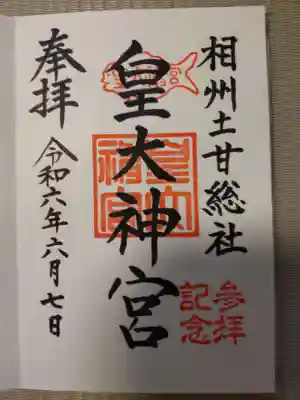 相州土甘総社
参拝
記念
皇大神宮
奉拝
令和六年六月七日